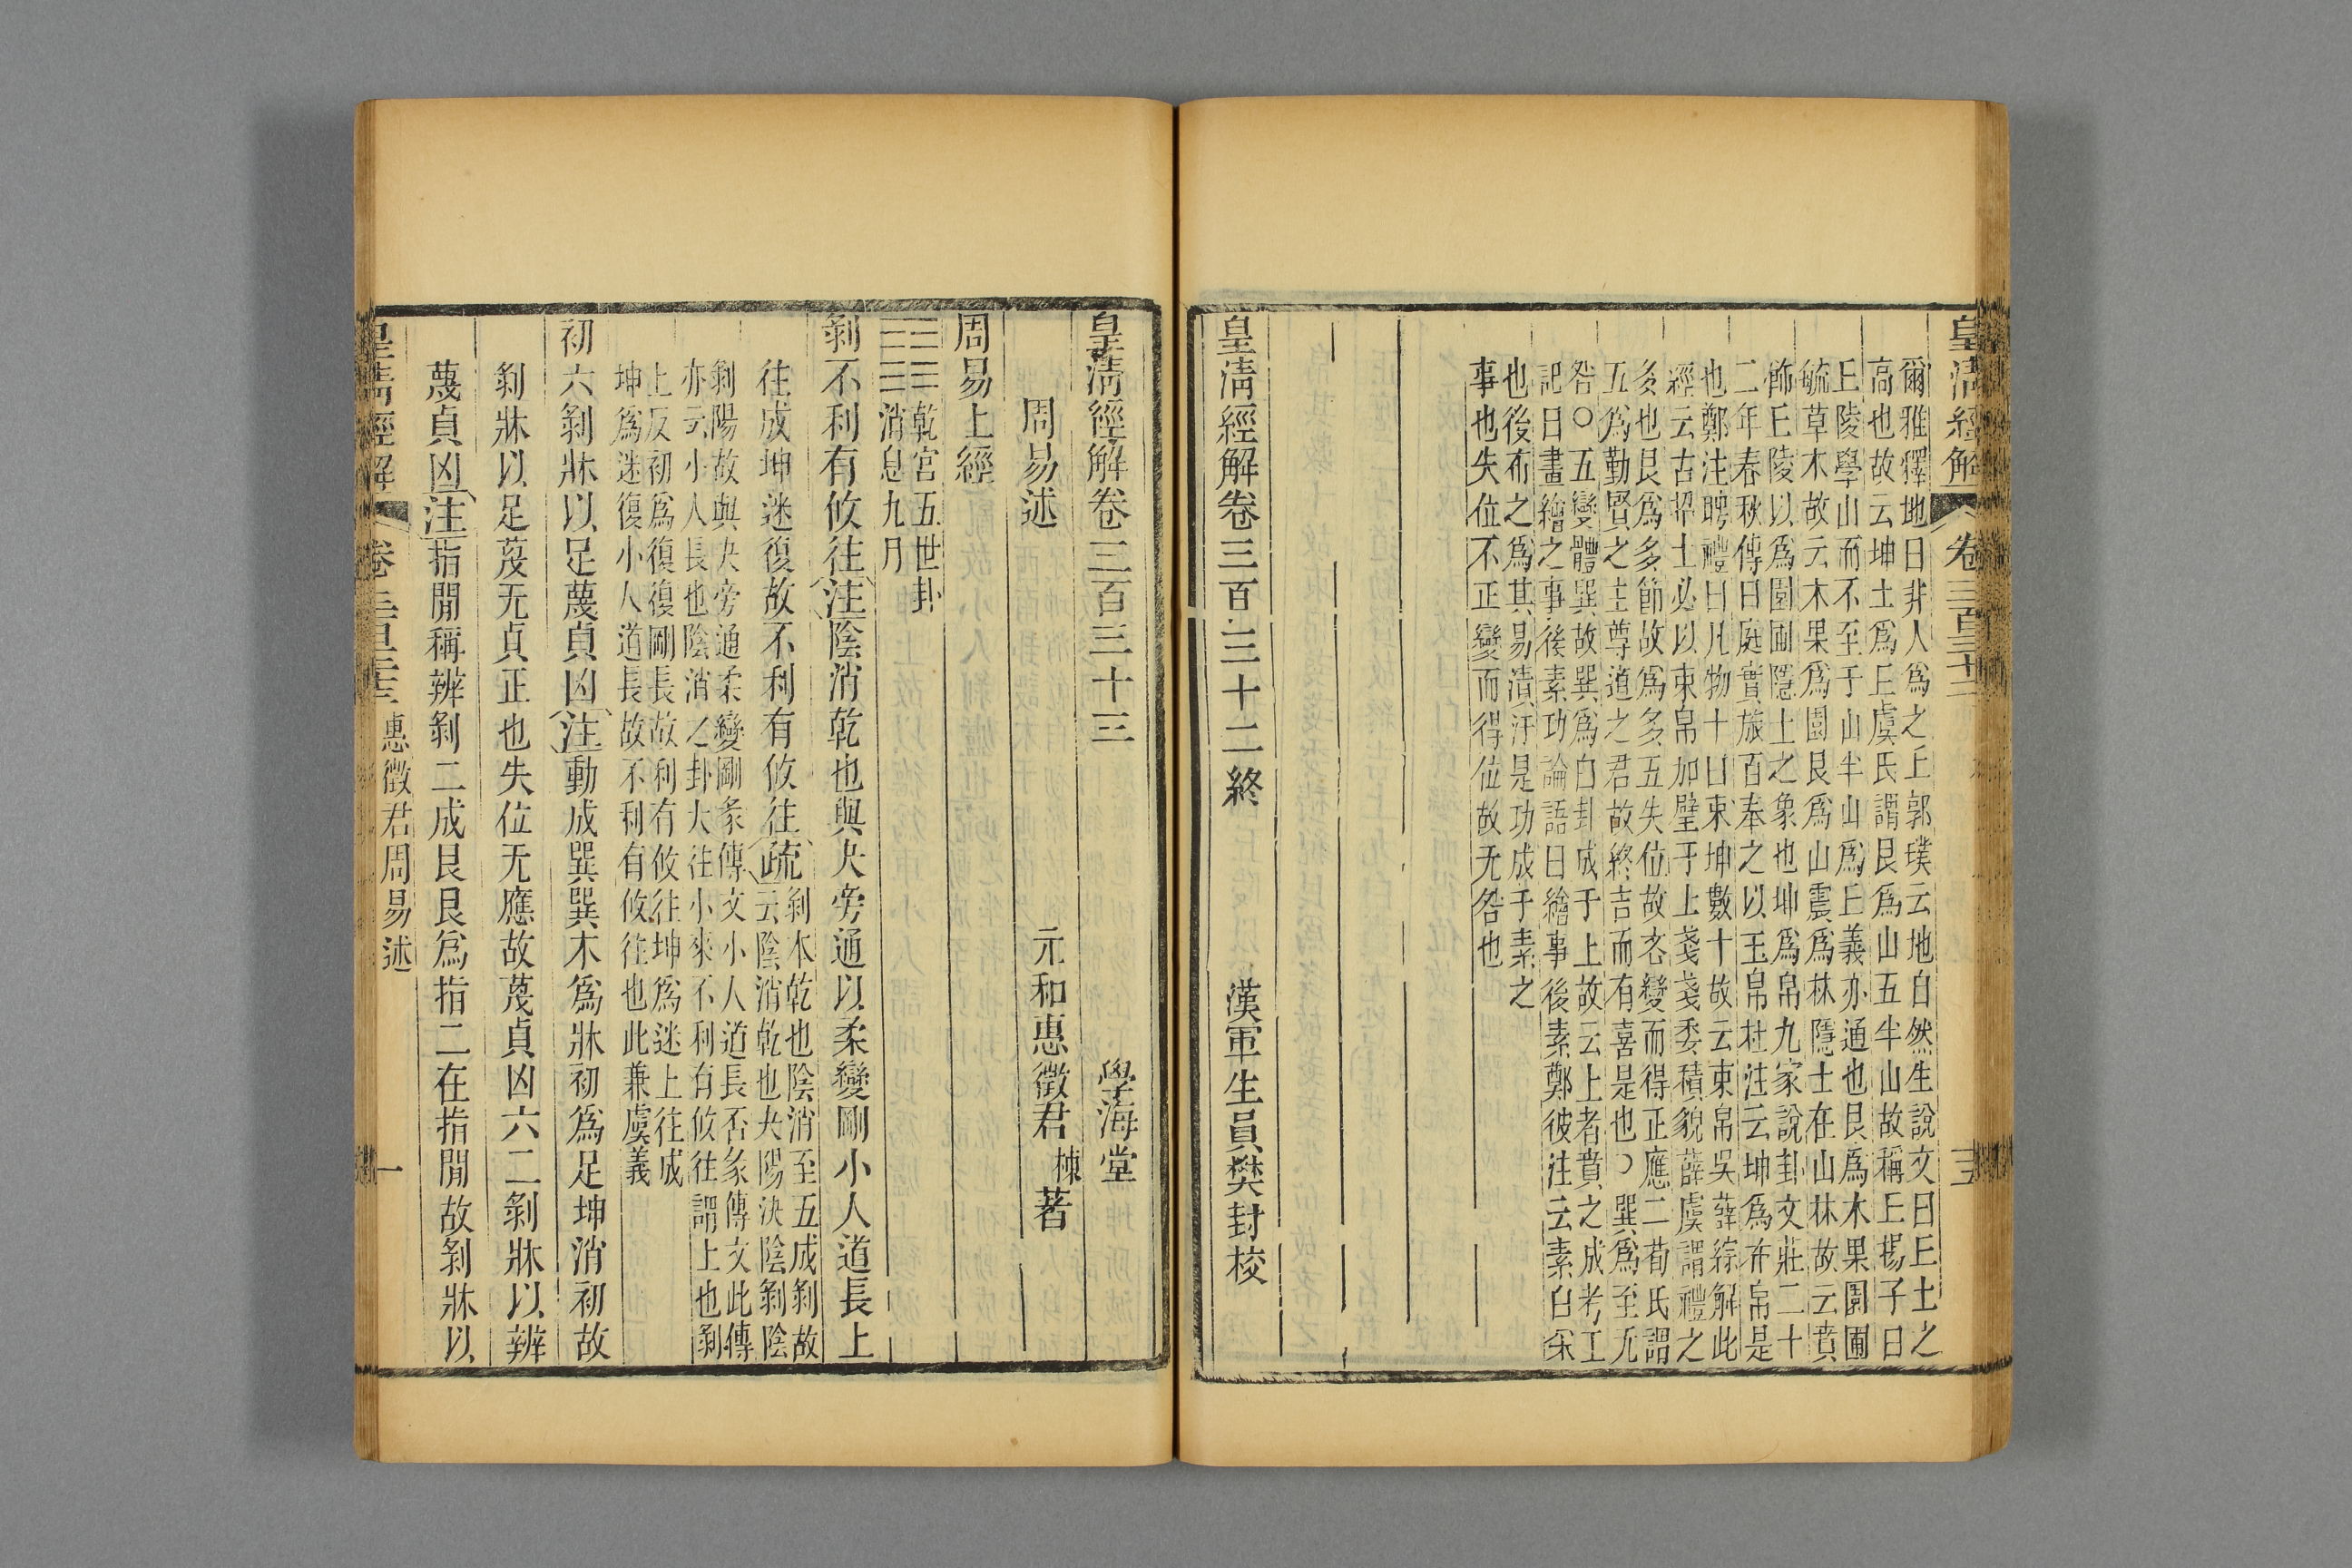 皇清經解
卷三百三十二
十五
爾雅釋地曰非人爲之丘郭璞云地自然生說文曰丘土之
高也故云坤土爲丘虞氏謂艮爲山五半山故稱丘揚子曰
丘陵學山而不至于山半山爲丘義亦通也艮爲木果園圃
毓草木故云木果爲園艮爲山震爲林隱士在山林故云賁
飾丘陵以爲園圃隱士之象也坤爲帛九家說卦文莊二十
二年春秋傳曰庭實旅百奉之以玉帛杜注云坤爲布帛是
也鄭注聘禮曰凡物十曰束坤數十故云束帛吳薛綜解此
經云古招士必以束帛加璧于上戔戔委積貌薛虞謂禮之
多也艮爲多節故爲多五失位故吝變而得正應二荀氏謂
五爲勤賢之主尊道之君故終吉而有喜是也○巽爲至无
咎○五變體巽故巽爲白卦成于上故云上者賁之成考工
記曰畫繪之事後素功論語曰繪事後素鄭彼注云素白采
也後布之爲其易漬汙是功成于素之
事也失位不正變而得位故无咎也
皇清經解卷三百三十二終
漢軍生員樊封校
皇清經解卷三百三十三
學海堂
周易述
元和惠徵君棟著
周易上經
乾宮五世卦
消息九月
剝不利有攸往注陰消乾也與夬旁通以柔變剛小人道長上
往成坤迷復故不利有攸往疏剝本乾也陰消至五成剝故
云陰消乾也夬陽決陰剝陰
剝陽故與夬旁通柔變剛彖傳文小人道長否彖傳文此傳
亦云小人長也陰消之卦大往小來不利有攸往謂上也剝
上反初爲復復剛長故利有攸往坤爲迷上往成
坤爲迷復小人道長故不利有攸往也此兼虞義
初六剝牀以足蔑貞凶注動成巽巽木爲牀初爲足坤消初故
剝牀以足蔑无貞正也失位无應故蔑貞凶六二剝牀以辨
蔑貞凶注指閒稱辨剝二成艮艮爲指二在指閒故剝牀以
皇清經解
卷三百三十三
惠徵君周易述
一